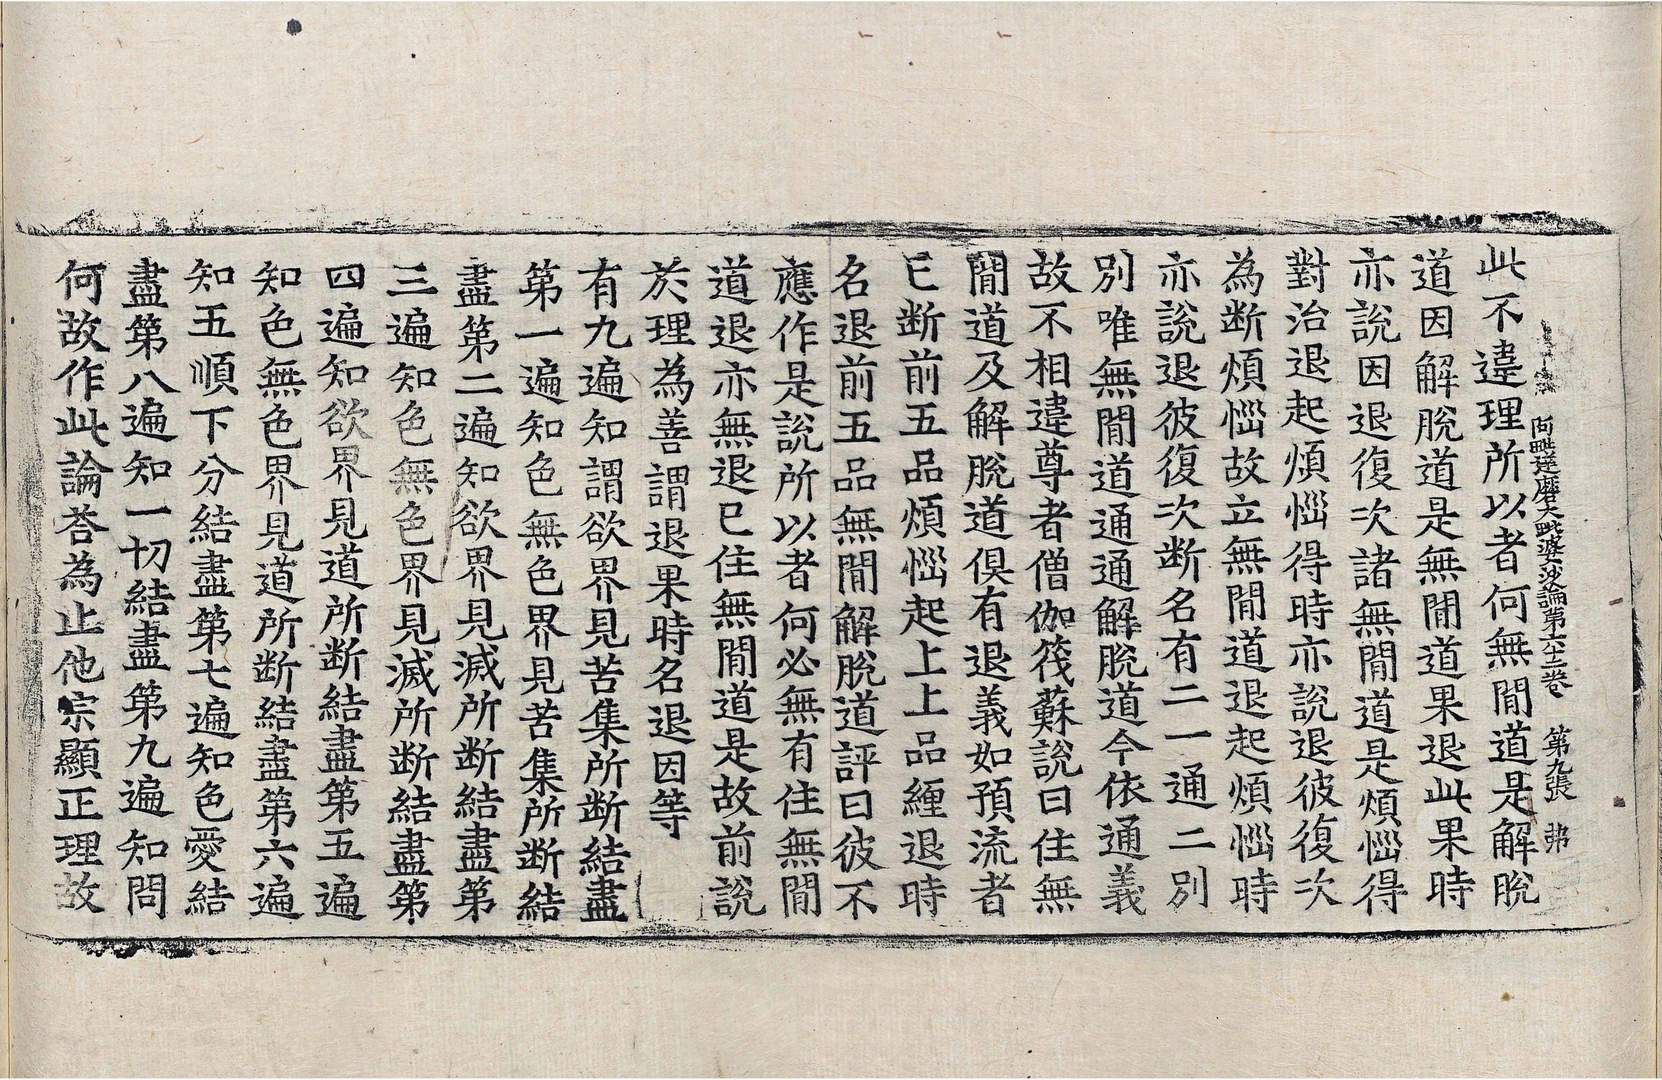 阿毗達磨大毗婆沙論第六十二卷 第九張 弗
此不違理所以者何無閒道是解脫
道因解脫道是無閒道果退此果時
亦說因退復次諸無閒道是煩惱得
對治退起煩惱得時亦說退彼復次
為断煩惱故立無閒道退起煩惱時
亦說退彼復次断名有二一通二別
別唯無閒道通通解脫道今依通義
故不相違尊者僧伽筏蘇說曰住無
閒道及解脫道俱有退義如預流者
已断前五品煩惱起上上品纏退時
名退前五品無閒解脫道評曰彼不
應作是說所以者何必無有住無閒
道退亦無退已住無閒道是故前說
於理為善謂退果時名退因等
有九遍知謂欲界見苦集所断結盡
第一遍知色無色界見苦集所断結
盡第二遍知欲界見滅所断結盡第
三遍知色無色界見滅所断結盡第
四遍知欲界見道所断結盡第五遍
知色無色界見道所断結盡第六遍
知五順下分結盡第七遍知色愛結
盡第八遍知一切結盡第九遍知問
何故作此論荅為止他宗顯正理故